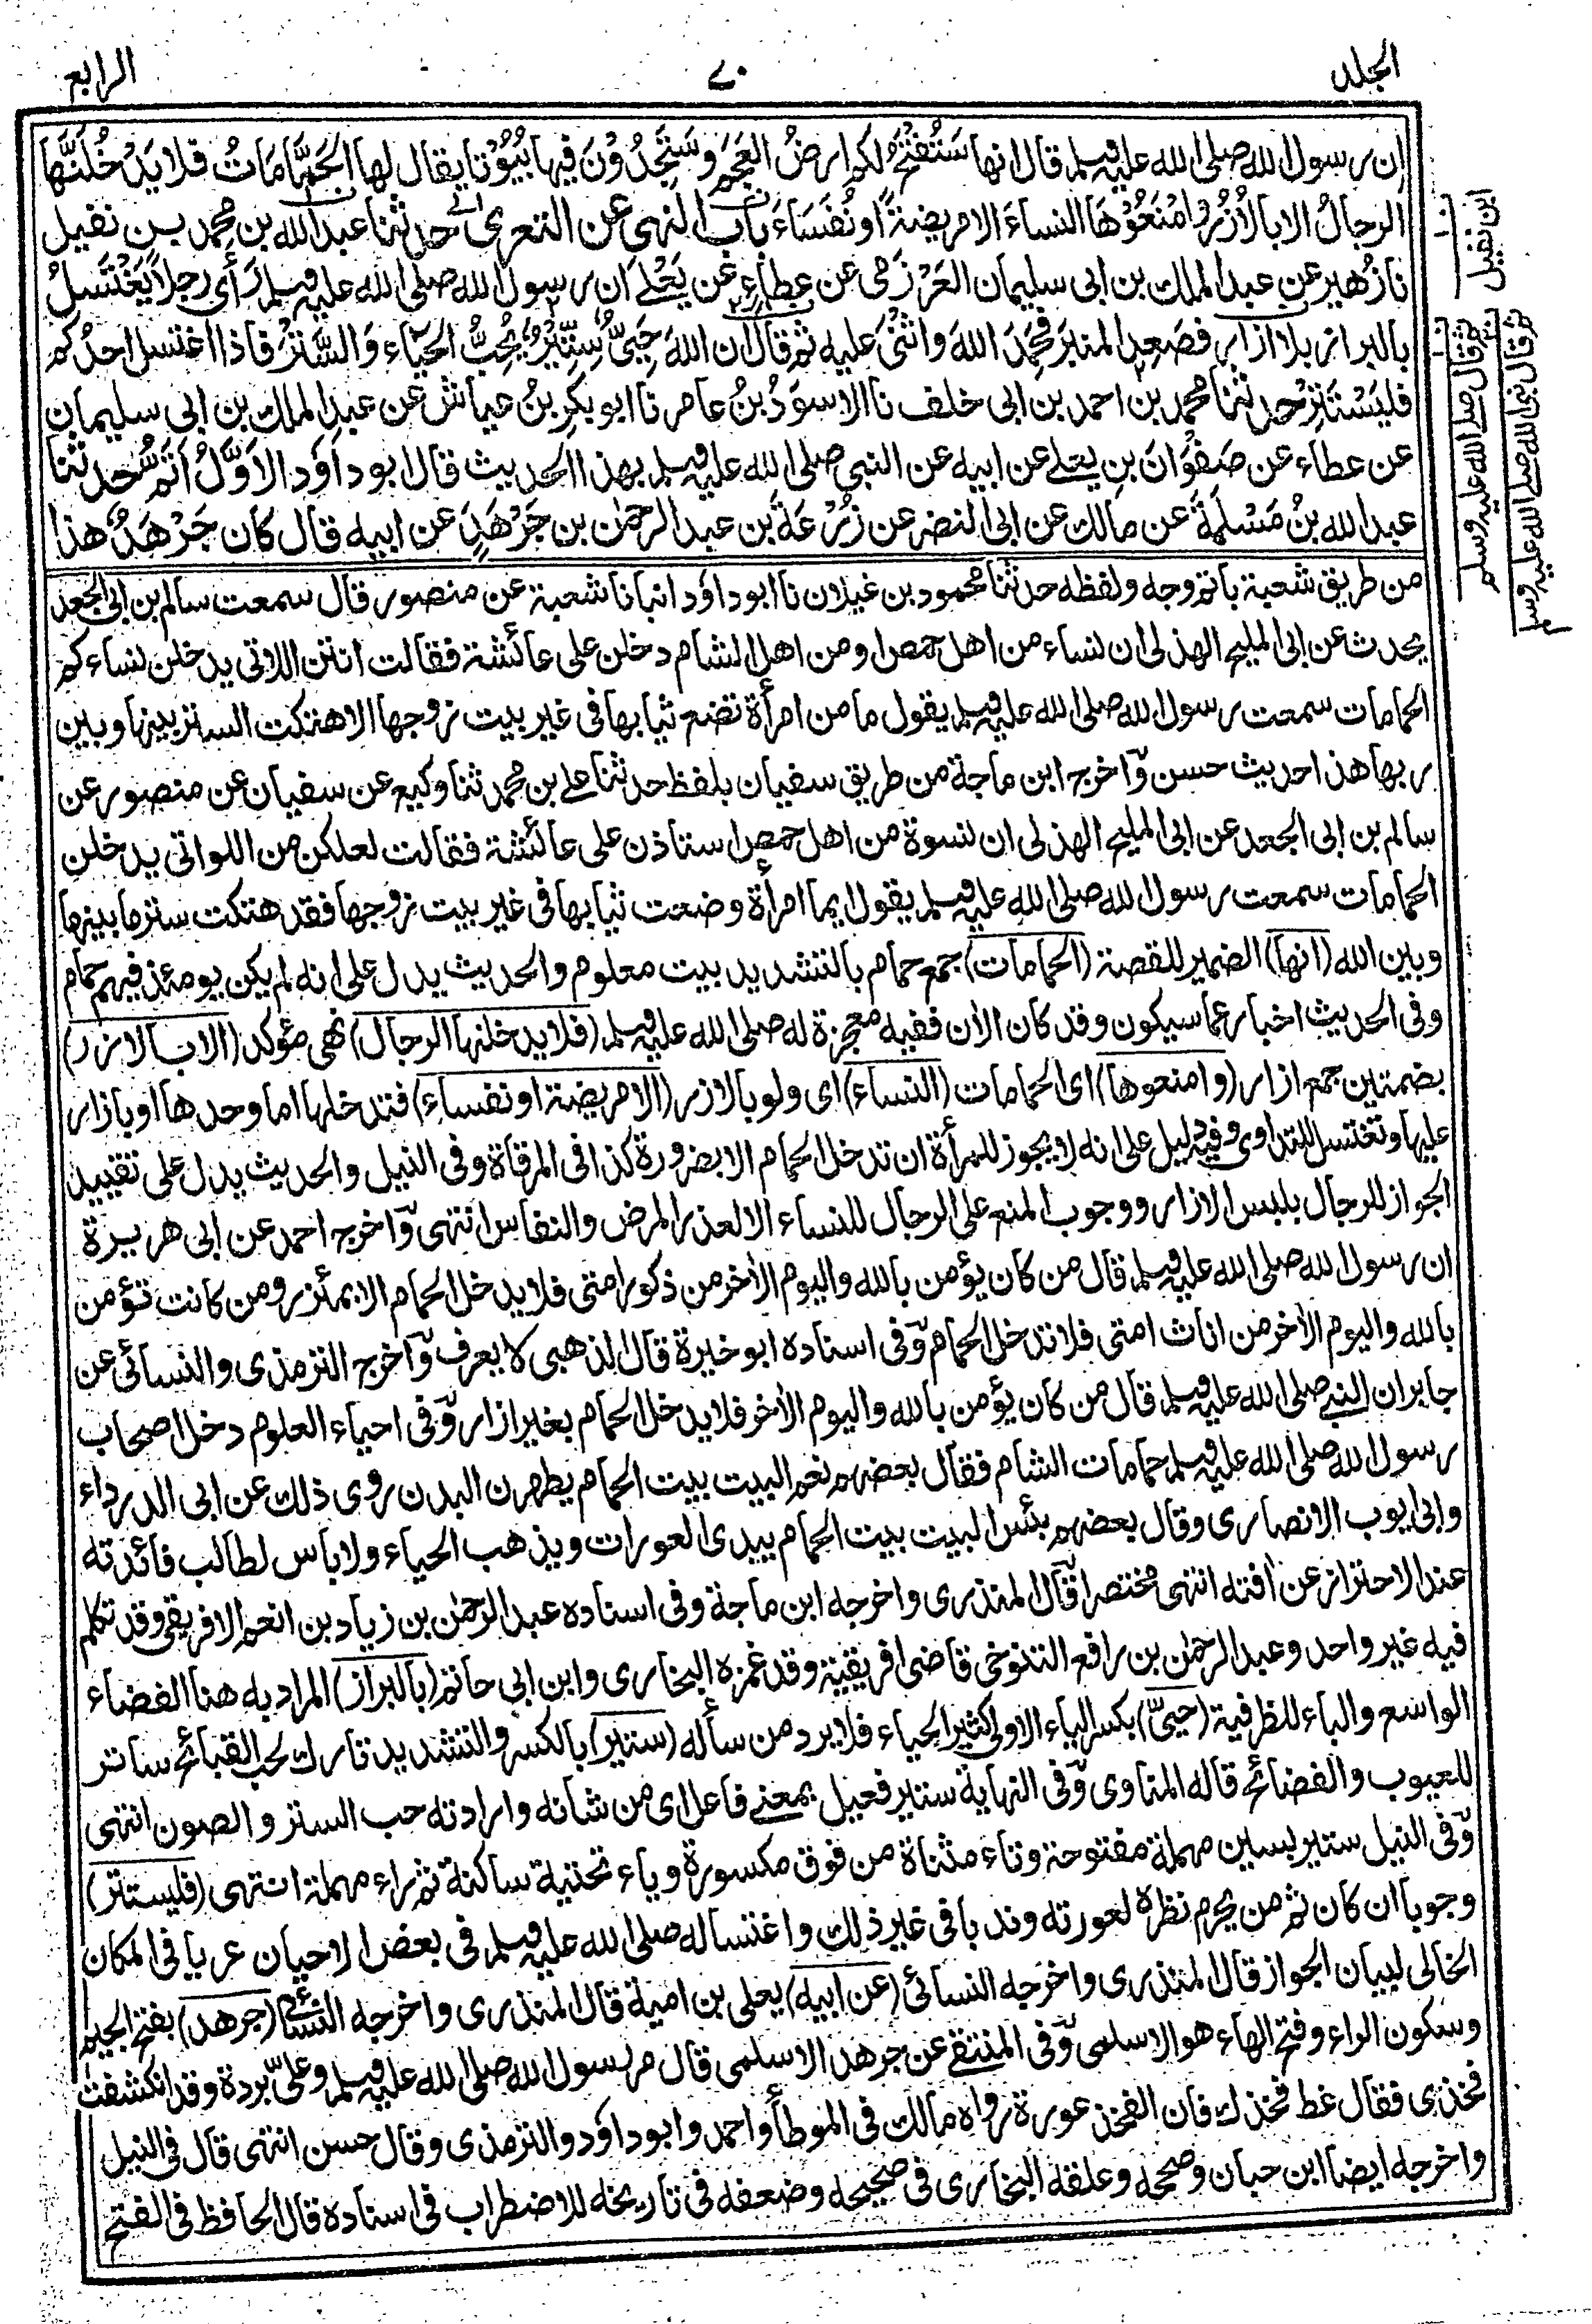 الجلد
٧٠
الرابع
ان رسول الله صلى الله عليه وسلم قال انها سَتُفْتَحُ لكم ارضُ العَجَمِ وسَتَجِدُوْنَ فيها بُيُوْتًا يقال لها الحَمَّامَاتُ فلا يَدْخُلَنَّها
الرجالُ الا بالاُزُرِ وامْنَعُوْهَا النساءَ الا مريضةً او نُفَسَاءَ باب النهى عن التعرى حدثنا عبد الله بن محمد بن نفيل
نا زُهير عن عبد الملك بن ابى سليمان العَرْزَمى عن عطاءٍ عن يَعْلےٰ ان رسول الله صلى الله عليه وسلم رَأى رجلاً يَغْتَسِلُ
بالبراز بلا ازار فصَعِدَ المنبرَ فَحَمِدَ اللهَ واثْنىٰ عليه ثم قال ان اللهَ حَيِىٌّ سِتِّيْرٌ يُحِبُّ الحَيَاءَ وَالسَّتْرَ فاذا اغتسل احدُكم
فليَسْتَتِرْ حدثنا محمد بن احمد بن ابى خلف نا الاسوَدُ بنُ عامر نا ابو بكرِ بنُ عياش عن عبد الملك بن ابى سليمان
عن عطاء عن صَفْوَانَ بنِ يعلے عن ابيه عن النبى صلى الله عليه وسلم بهذا الحديث قال ابو داؤد الاَوَّلُ اَتَمُّ حدثنا
عبد الله بنُ مَسْلَمَةَ عن مالك عن ابى النضر عن زُرْعَةَ بن عبد الرحمٰن بن جَرْهَدٍ عن ابيه قال كان جَرْهَدٌ هذا
ابن نفيل
ثم قال صلے الله عليه وسلم
ثم قال نبى الله صلے الله عليه وسلم
من طريق شعبة باتم وجه ولفظه حدثنا محمود بن غيلان نا ابو داؤد انبانا شعبة عن منصور قال سمعت سالم بن ابى الجعد
يحدث عن ابى المليح الهذلى ان نساء من اهل حمص او من اهل الشام دخلن على عائشة فقالت انتن اللاتى يدخلن نساءكم
الحمامات سمعت رسول الله صلى الله عليه وسلم يقول ما من امرأة تضع ثيابها فى غير بيت زوجها الا هتكت الستر بينها وبين
ربها هذا حديث حسن وٓاخرجه ابن ماجة من طريق سفيان بلفظ حدثنا علے بن محمد ثنا وكيع عن سفيان عن منصور عن
سالم بن ابى الجعد عن ابى المليح الهذلى ان نسوة من اهل حمص استاذن على عائشة فقالت لعلكن من اللواتى يدخلن
الحمامات سمعت رسول الله صلى الله عليه وسلم يقول ايما امرأة وضعت ثيابها فى غير بيت زوجها فقد هتكت ستر ما بينها
وبين الله (انها) الضمير للقصة (الحمامات) جمع حمام بالتشديد بيت معلوم والحديث يدل على انه لم يكن يومئذ فيهم حمام
وفى الحديث اخبار عما سيكون وقد كان الاٰن ففيه معجزة له صلى الله عليه وسلم (فلا يدخلنها الرجال) نهى مؤكد (الا بالازر)
بضمتين جمع ازار (وامنعوها) اى الحمامات (النساء) اى ولو بالازر (الا مريضة او نفساء) فتدخلها اما وحدها او بازار
عليها وتغتسل للتداوى وفيه دليل على انه لا يجوز للمرأة ان تدخل الحمام الا بضرورة كذا فى المرقاة وفى النيل والحديث يدل على تقييد
الجواز للرجال بلبس الازار ووجوب المنع على الرجال للنساء الا لعذر المرض والنفاس انتهى وٓاخرجه احمد عن ابى هريرة
ان رسول الله صلى الله عليه وسلم قال من كان يؤمن بالله واليوم الاٰخر من ذكور امتى فلا يدخل الحمام الا بمئزر ومن كانت تؤمن
بالله واليوم الاٰخر من اناث امتى فلا تدخل الحمام وٓفى اسناده ابو خيرة قال الذهبى لا يعرف وٓاخرج الترمذى والنسائى عن
جابر ان النبے صلى الله عليه وسلم قال من كان يؤمن بالله واليوم الاٰخر فلا يدخل الحمام بغير ازار وٓفى احياء العلوم دخل اصحاب
رسول الله صلى الله عليه وسلم حمامات الشام فقال بعضهم نعم البيت بيت الحمام يطهرن البدن روى ذلك عن ابى الدرداء
وابى ايوب الانصارى وقال بعضهم بئس البيت بيت الحمام يبدى العورات ويذهب الحياء ولا باس لطالب فائدته
عند الاحتراز عن اٰفته انتهى مختصرا قٓال المنذرى واخرجه ابن ماجة وفى اسناده عبد الرحمٰن بن زياد بن انعم الافريقى وقد تكلم
فيه غير واحد وعبد الرحمٰن بن رافع التنوخى قاضى افريقية وقد غمزه البخارى وابن ابى حاتم (بالبراز) المراد به هنا الفضاء
الواسع والباء للظرفية (حيىّ) بكسر الياء الاولى كثير الحياء فلا يرد من سأله (ستير) بالكسر والتشديد تارك لحب القبائح ساتر
للعيوب والفضائح قاله المناوى وٓفى النهاية ستير فعيل بمعنے فاعل اى من شانه وارادته حب الستر والصون انتهى
وٓفى النيل ستير بسين مهملة مفتوحة وتاء مثناة من فوق مكسورة وياء تحتية ساكنة ثم راء مهملة انتهى (فليستتر)
وجوبا ان كان ثم من يحرم نظره لعورته وندبا فى غير ذلك واغتساله صلى الله عليه وسلم فى بعض الاحيان عريا فى المكان
الخالى لبيان الجواز قال المنذرى واخرجه النسائى (عن ابيه) يعلى بن امية قال المنذرى واخرجه النسائے (جرهد) بفتح الجيم
وسكون الراء وفتح الهاء هو الاسلمى وٓفى المنتقے عن جرهد الاسلمى قال مر رسول الله صلى الله عليه وسلم وعلىّ بردة وقد انكشفت
فخذى فقال غط فخذك فان الفخذ عورة رواه مالك فى الموطأ واحمد وابو داؤد والترمذى وقال حسن انتهى قال فى النيل
واخرجه ايضا ابن حبان وصححه وعلقه البخارى فى صحيحه وضعفه فى تاريخه للاضطراب فى اسناده قال الحافظ فى الفتح